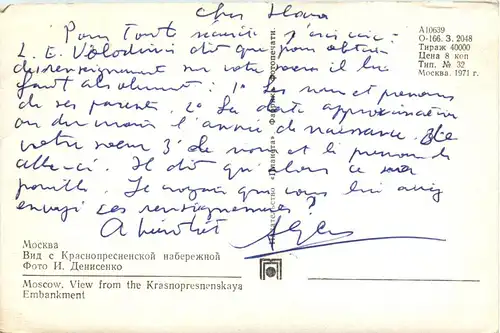 Cher
Pour Tout sécurité j'écris
L. E. Volodine dit que pour obtenir
des renseignement sur votre soeur il lui
faut absolument : 1° Les nom et prenoms
de ses parents. 2° La date approximative
ou du moins l'année de naissance de
votre soeur 3° le nom et le prenom de
celle-ci. Il dit que dans ce
pouille. Je croyais que vous lui aviez
envoyé ces renseignements?
A bientôt
А10639
О-166. З. 2048
Тираж 40000
Цена 8 коп
Тип. № 32
Москва. 1971 г.
Издательство «Планета» Фабрика Фотопечати
Москва
Вид с Краснопресненской набережной
Фото И. Денисенко
Moscow. View from the Krasnopresnenskaya
Embankment